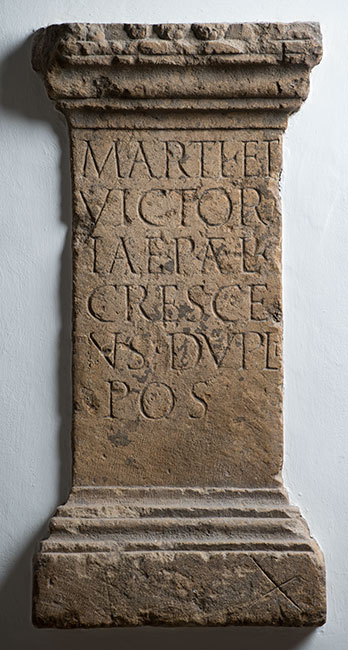 MARTI·ET
VICTOR
IAE P ÆL
CRESCE
VS·DVPL
POS